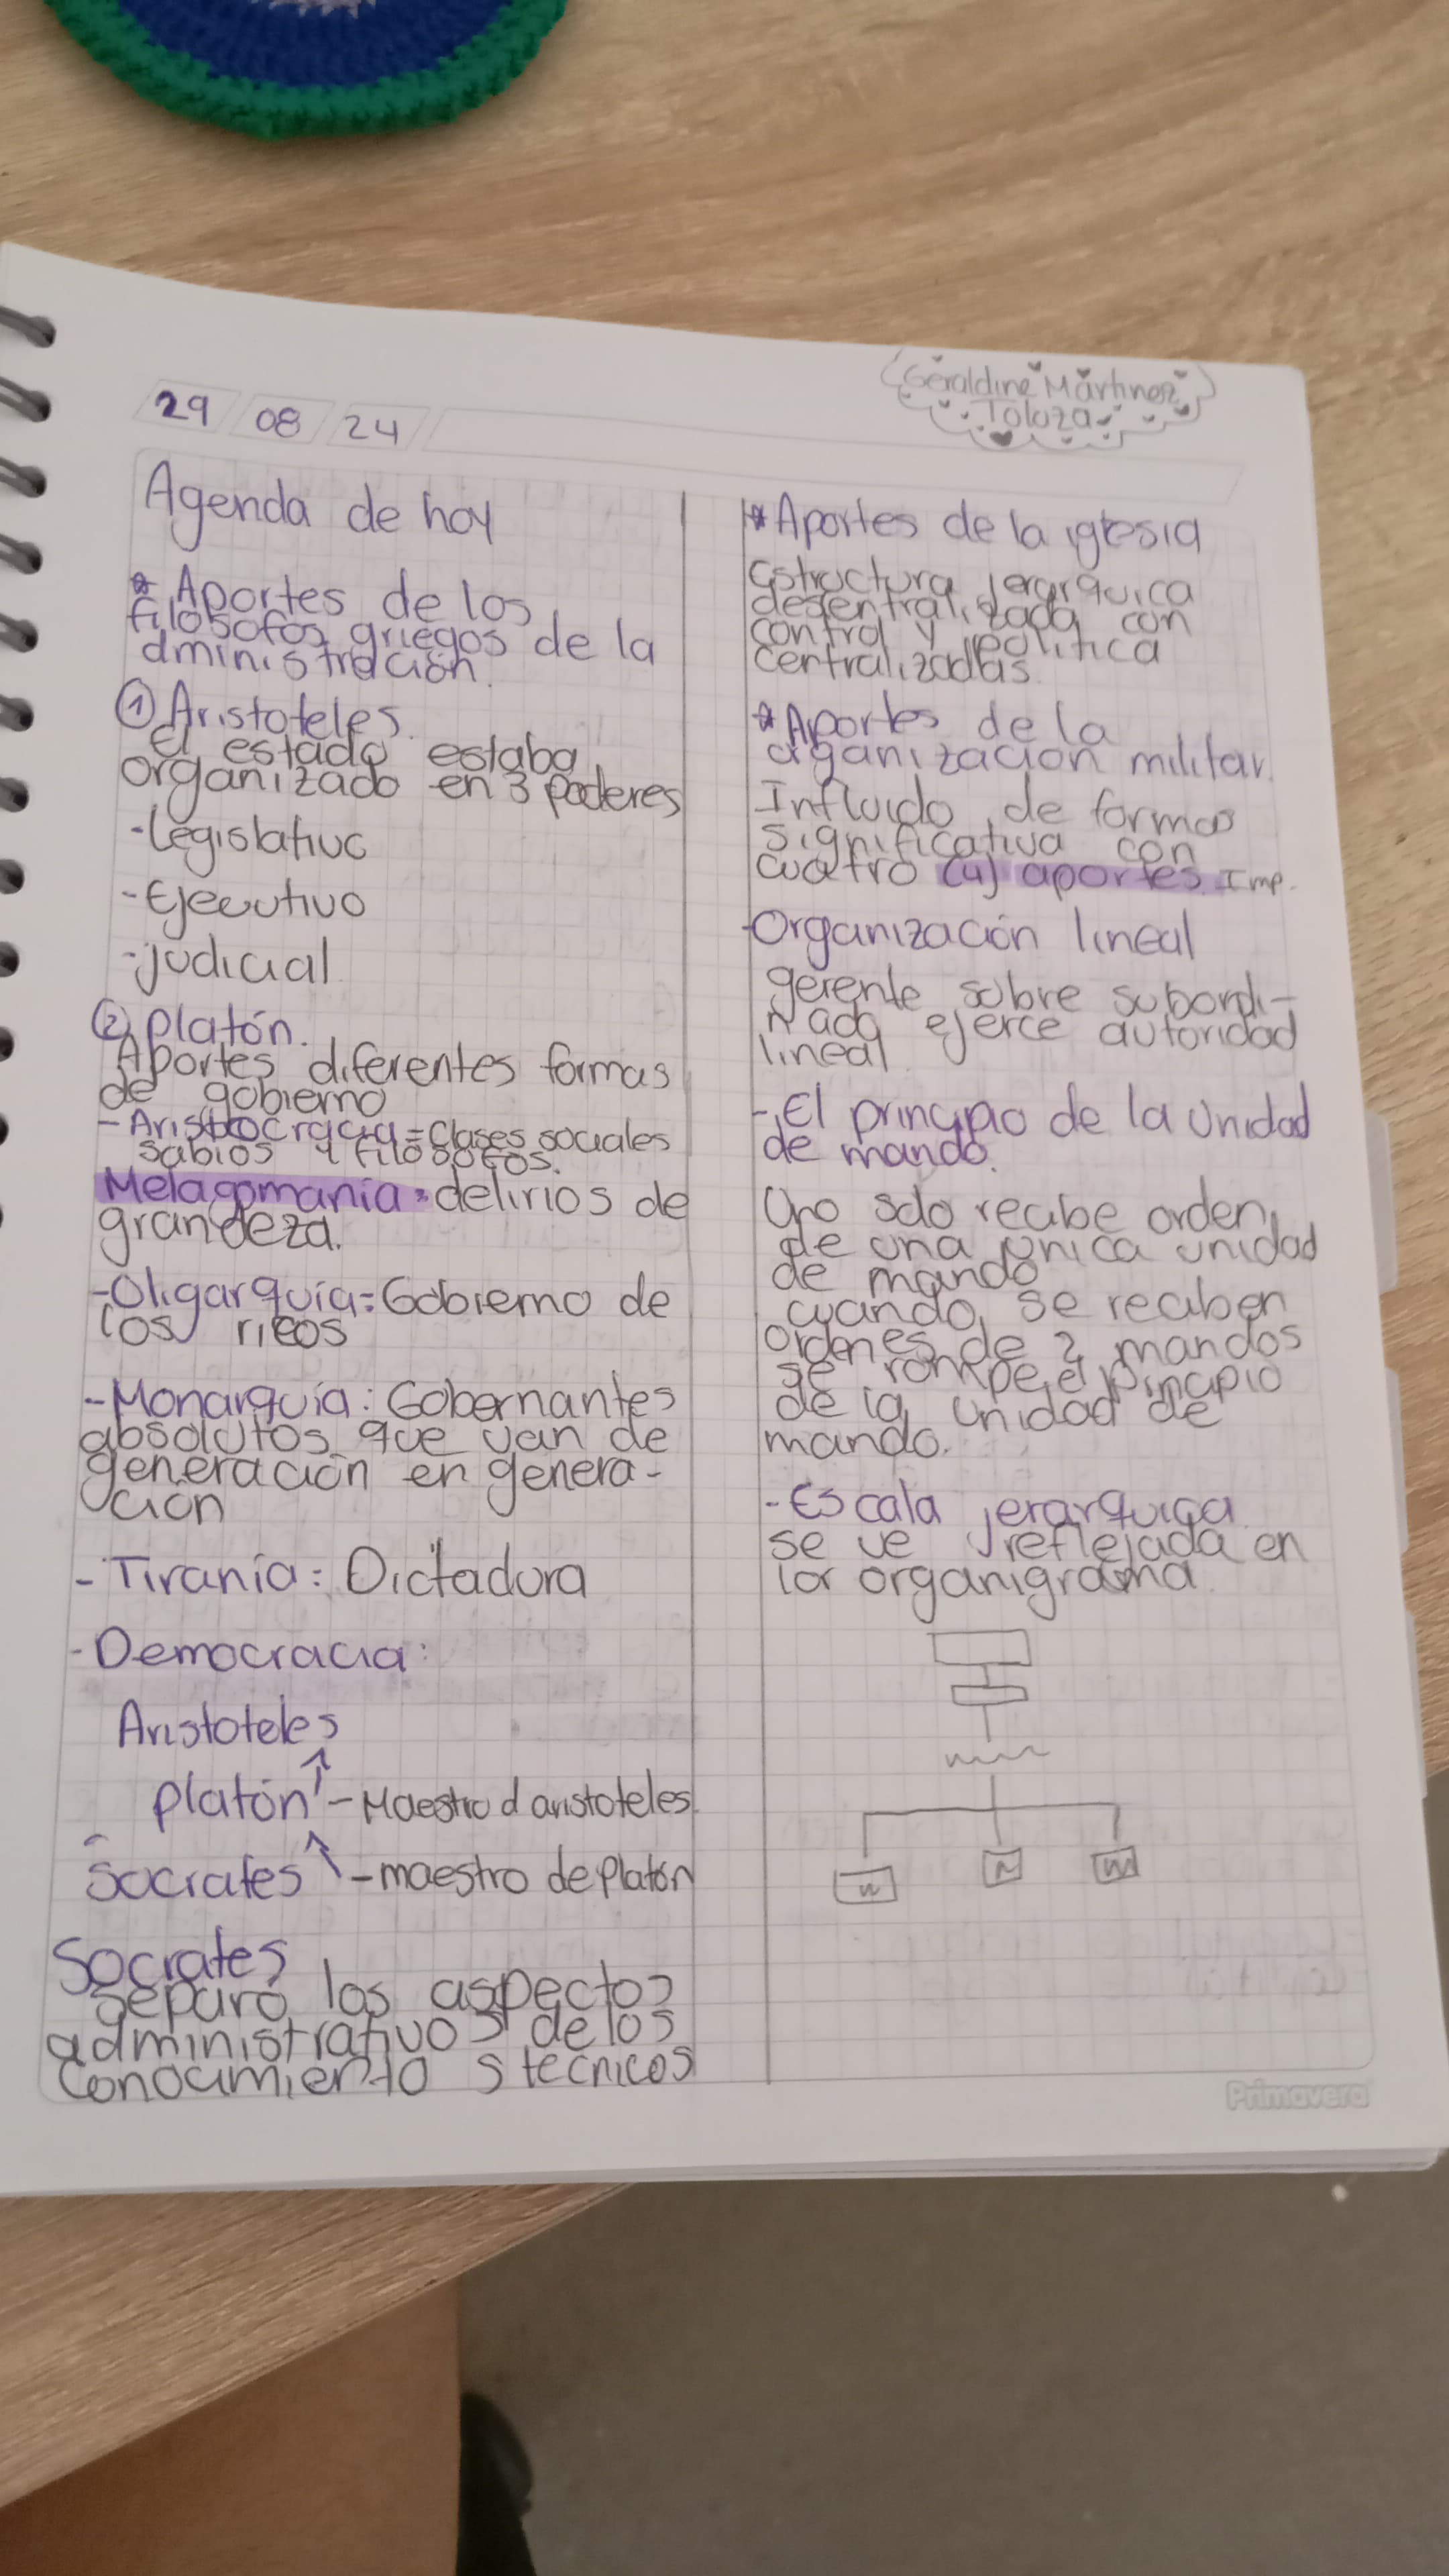 29 08 24
Geraldine Martinez
Toloza
Agenda de hoy
* Aportes de los
filosofos griegos de la
dministración.
① Aristoteles.
el estado estaba
organizado en 3 poderes
-legislativo
-Ejecutivo
-judicial
② Platón.
Aportes diferentes formas
de gobierno
- Aristocracia = Clases sociales
sabios y filosofos.
Melagomanía = delirios de
grandeza.
-Oligarquía = Gobierno de
los ricos
-Monarquía: Gobernantes
absolutos que van de
generación en genera-
ción
- Tiranía: Dictadura
-Democracia:
Aristoteles
Platón - Maestro d aristoteles
Socrates - maestro de Platón
Socrates
Separó los aspectos
administrativos de los
conocimiento s tecnicos
* Aportes de la iglesia
Estructura jerarquica
desentralizada con
control y politica
centralizadas.
* Aportes de la
organización militar.
Influido de formas
significativa con
cuatro (4) aportes Imp.
-Organización lineal
gerente sobre subordi-
nado ejerce autoridad
lineal
- El principio de la Unidad
de mando.
Uno solo recibe orden
de una unica unidad
de mando
cuando se reciben
ordenes de 2 mandos
se rompe el principio
de la unidad de
mando.
- Escala jerarquica
se ve reflejada en
lor organigrama
Primavera